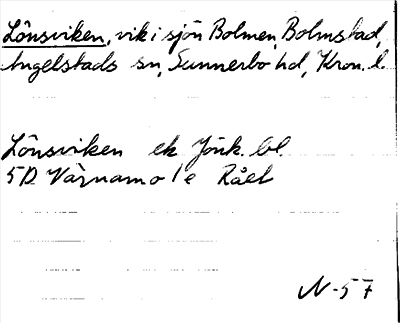 Lönsviken, vik i sjön Bolmen, Bolmstad,
Angelstads sn, Sunnerbo hd, Kron. l.
Lönsviken ek Jönk. bl.
5D Värnamo 1e Råel
N-57